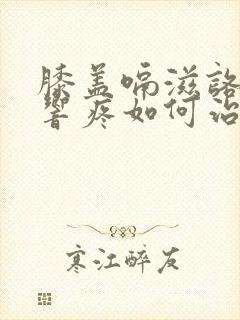 膝盖嗝滋咯
响疼如何治
寒江醉友